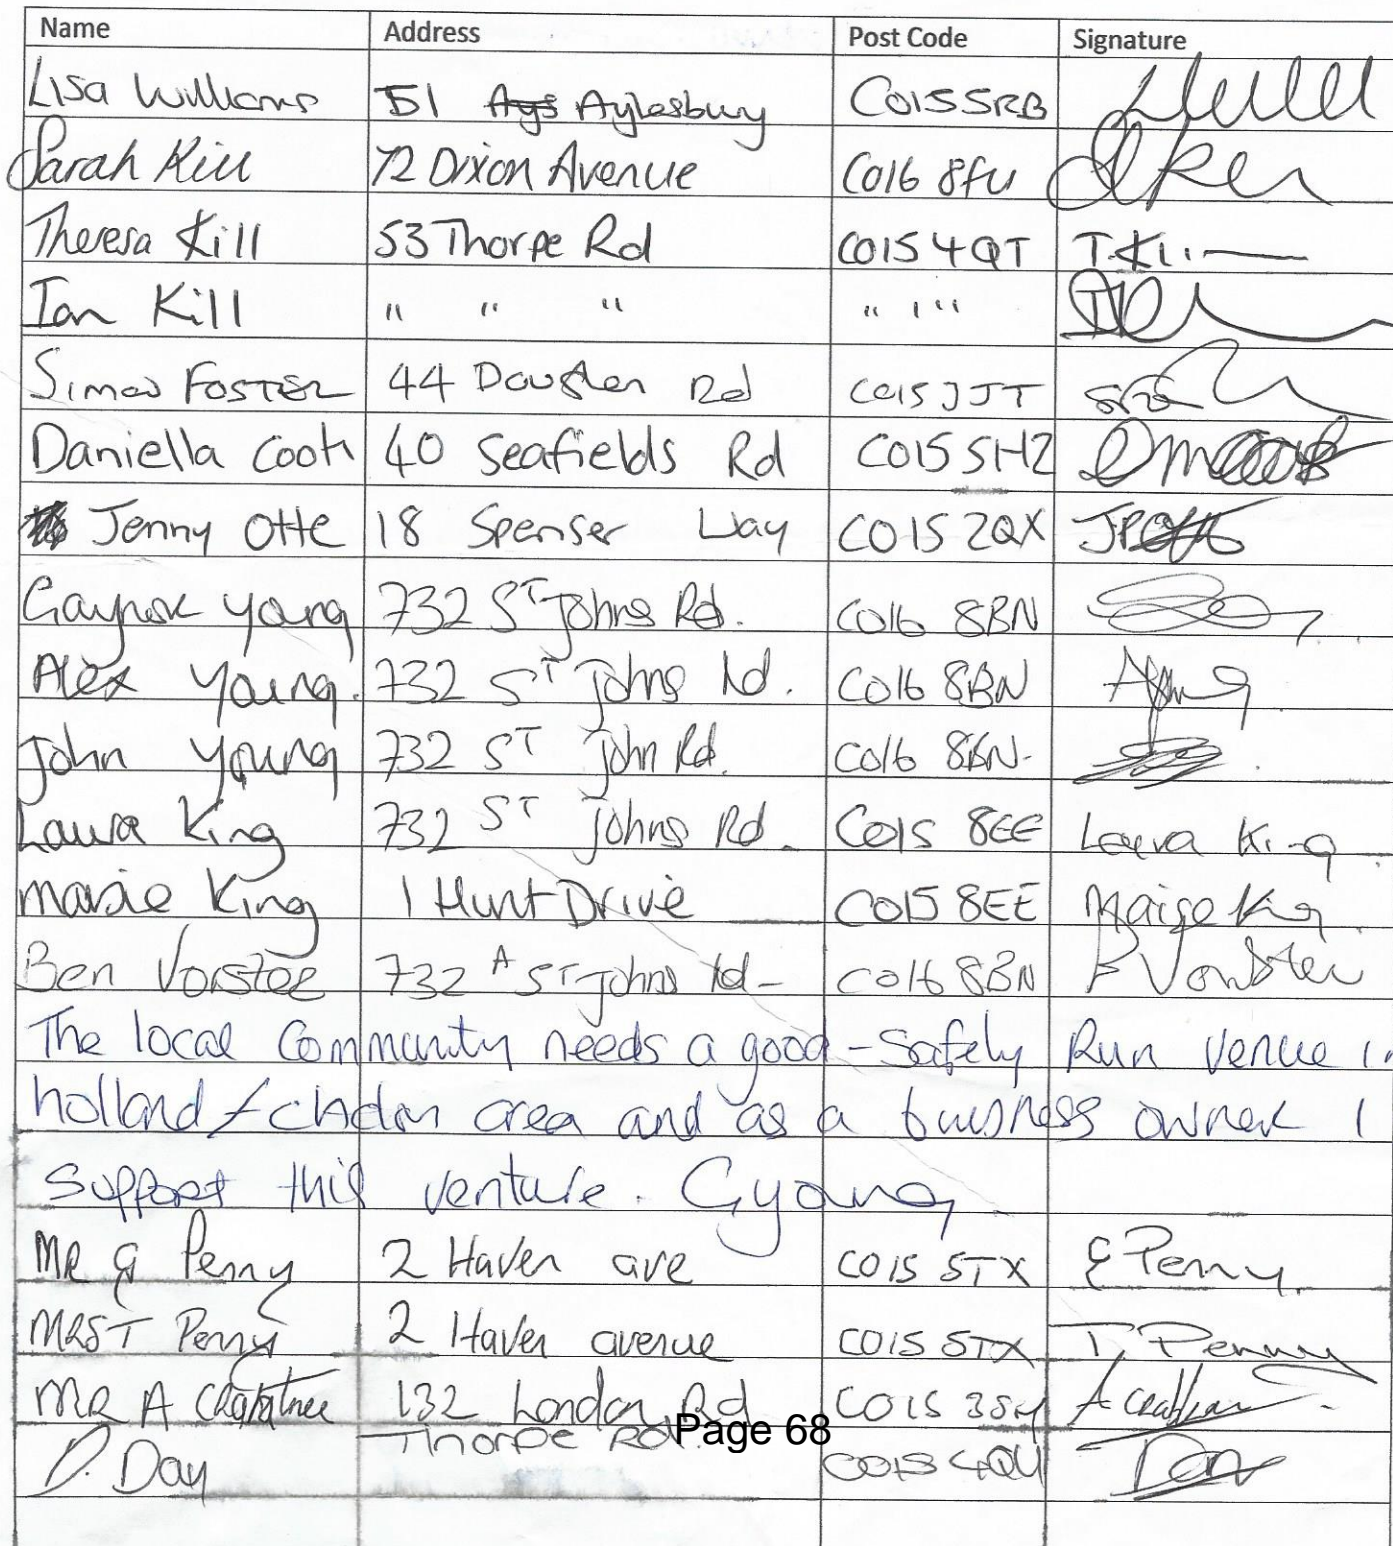 Name Address Post Code Signature
Lisa Williams 51 Ays Aylesbury CO15 5RB
Sarah Kill 72 Dixon Avenue CO16 8FU
Theresa Kill 53 Thorpe Rd CO15 4QT T. Kill
Ian Kill " " " " " "
Simon FOSTER 44 Rd CO15
Daniella Cook 40 Seafields Rd CO15 5HZ
Jenny Otte 18 Spenser Way CO15 2QX
Gaynor Young 732 ST Johns Rd. CO16 8BN
Alex Young. 732 ST Johns Rd. CO16 8BN AYoung
John Young 732 ST John Rd. CO16 8BN.
Laura King 732 ST Johns Rd. CO15 8EE Laura King
King 1 Hunt Drive CO15 8EE King
Ben Vorster 732 A ST Johns Rd- CO16 8BN B Vorster
The local Community needs a good - Safely Run venue in
holland / clacton area and as a business owner I
support this venture. GYoung
MR G Penny 2 Haven ave CO15 5TX G Penny.
MRS T Penny 2 Haven avenue CO15 5TX T. Penny
MR A Crabtree 132 London Rd CO15
D. Day Thorpe Rd. CO15 4QU Day
Page 68